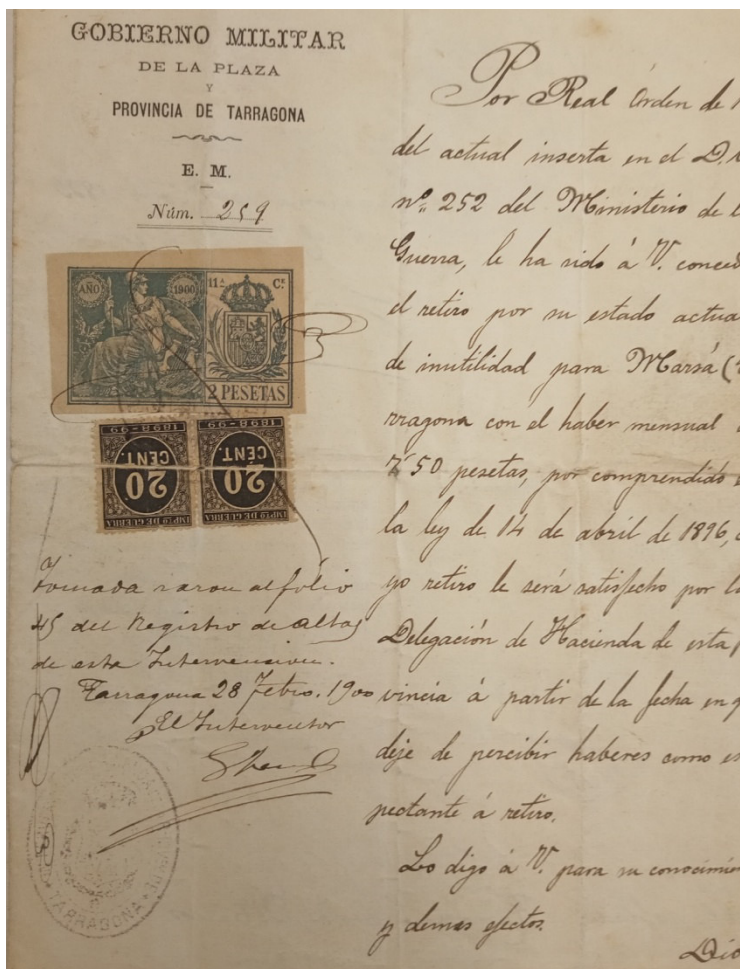 GOBIERNO MILITAR
DE LA PLAZA
Y
PROVINCIA DE TARRAGONA
E. M.
Núm. 259
AÑO 1900
11ª Cª
2 PESETAS
1898-99
20
CENT.
IMPTO DE GUERRA
1898-99
20
CENT.
IMPTO DE GUERRA
Tomada razon al folio
45 del Registro de altas
de esta Intervencion.
Tarragona 28 Febro. 1900
El Interventor
TARRAGONA
Por Real órden de
del actual inserta en el D.
nº 252 del Ministerio de
Guerra, le ha sido á V. conced
el retiro por su estado actua
de inutilidad para Marsá (
rragona con el haber mensual
7'50 pesetas, por comprendido
la ley de 14 de abril de 1896,
yo retiro le será satisfecho por l
Delegación de Hacienda de esta p
vincia á partir de la fecha en q
deje de percibir haberes como es
pectante á retiro.
Lo digo á V. para su conocimie
y demas efectos.
Dio